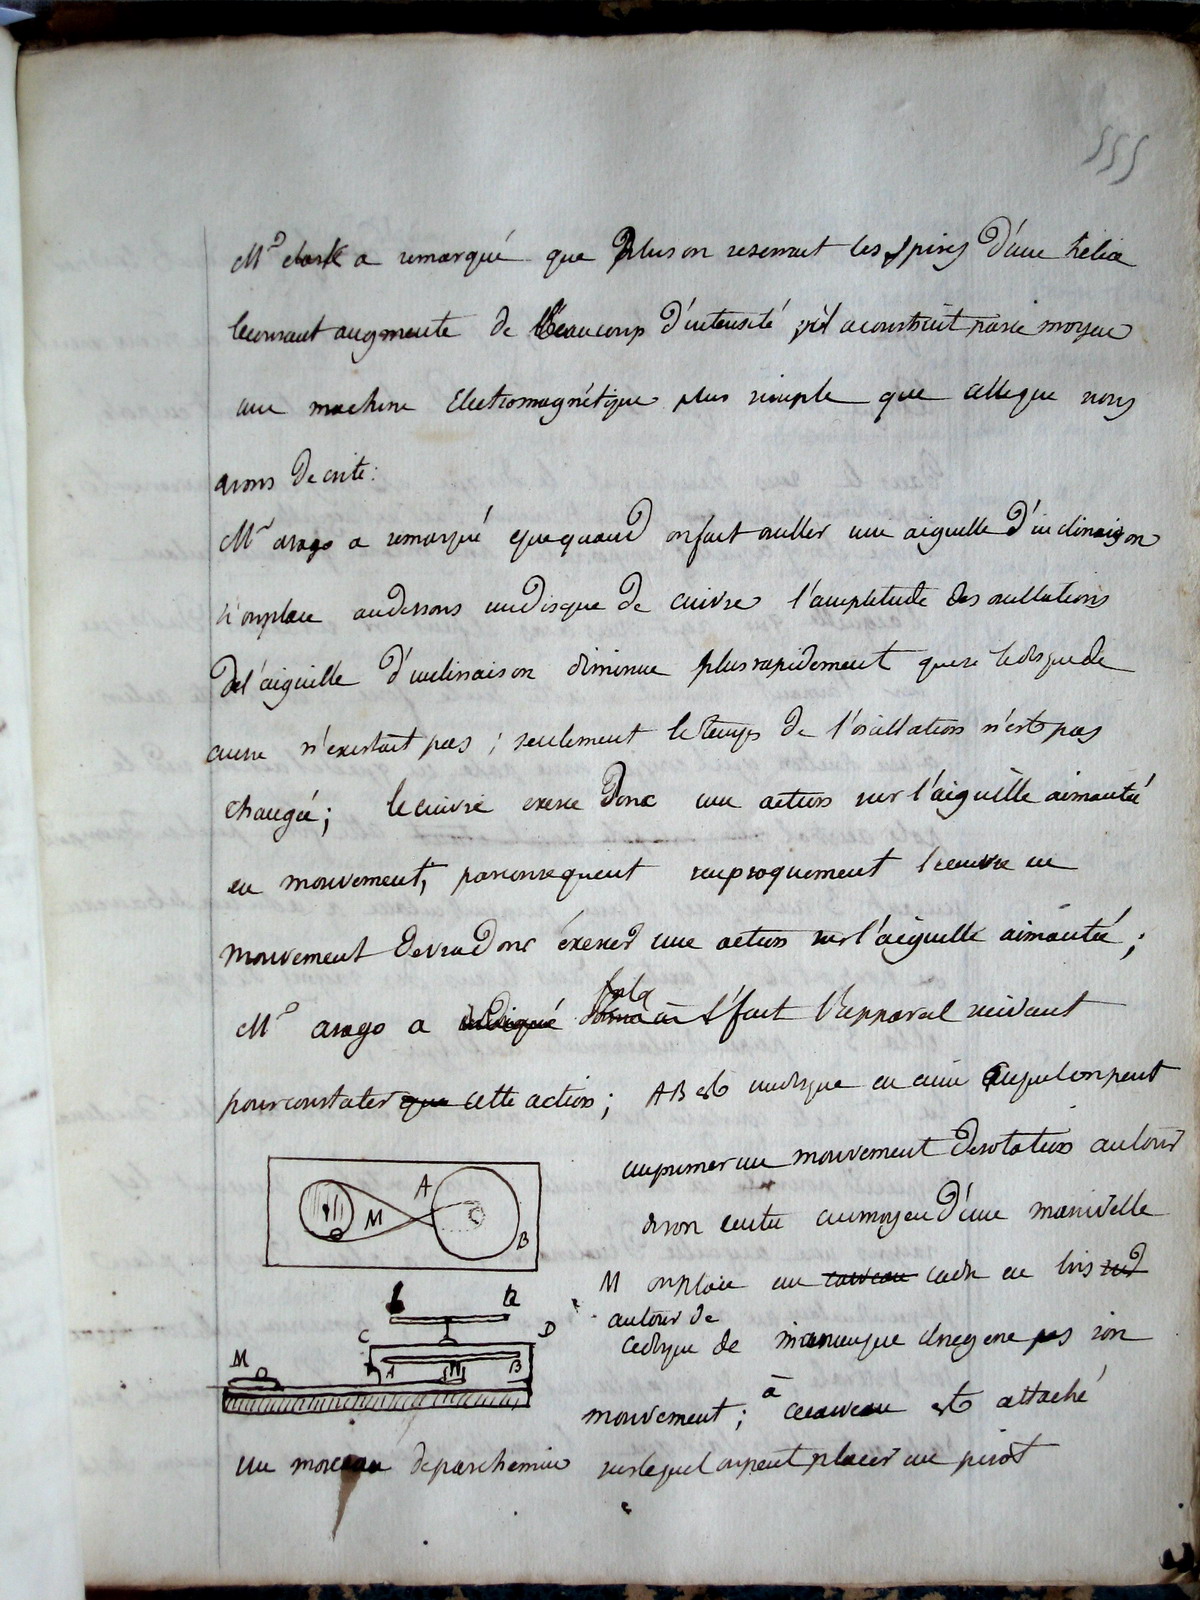 555
Mr clark a remarqué que Plus on reserrait les spires d'une hélice
le courant augmente de Beaucoup d'intensité, il a construit par ce moyen
une machine Electromagnétique plus simple que celle que nous
avons Decrite:
Mr arago a remarqué que quand on fait osciller une aiguille d'inclinaison
si on place audessous un disque de cuivre l'amplitude des oscillations
de l'aiguille d'inclinaison diminue plus rapidement que si le disque de
cuivre n'existait pas; seulement le temps de l'oscillation n'est pas
changé; le cuivre exerce Donc une action sur l'aiguille aimantée
en mouvement, par consequent reciproquement le cuivre en
mouvement devra Donc éxercer une action sur l'aiguille aimantée;
Mr arago a indiqué à l'appareil suivant
pour constater que cette action; AB est un disque en cuivre auquel on peut
imprimer un mouvement de rotation autour
de son centre au moyen d'une manivelle
M on place un caveau cadre en bois
autour de
ce disque de maniere que il ne gene pas son
mouvement; à ce caveau est attaché
un morceau de parchemin sur lequel on peut placer un pivot
M A B
b a
C D
M A B